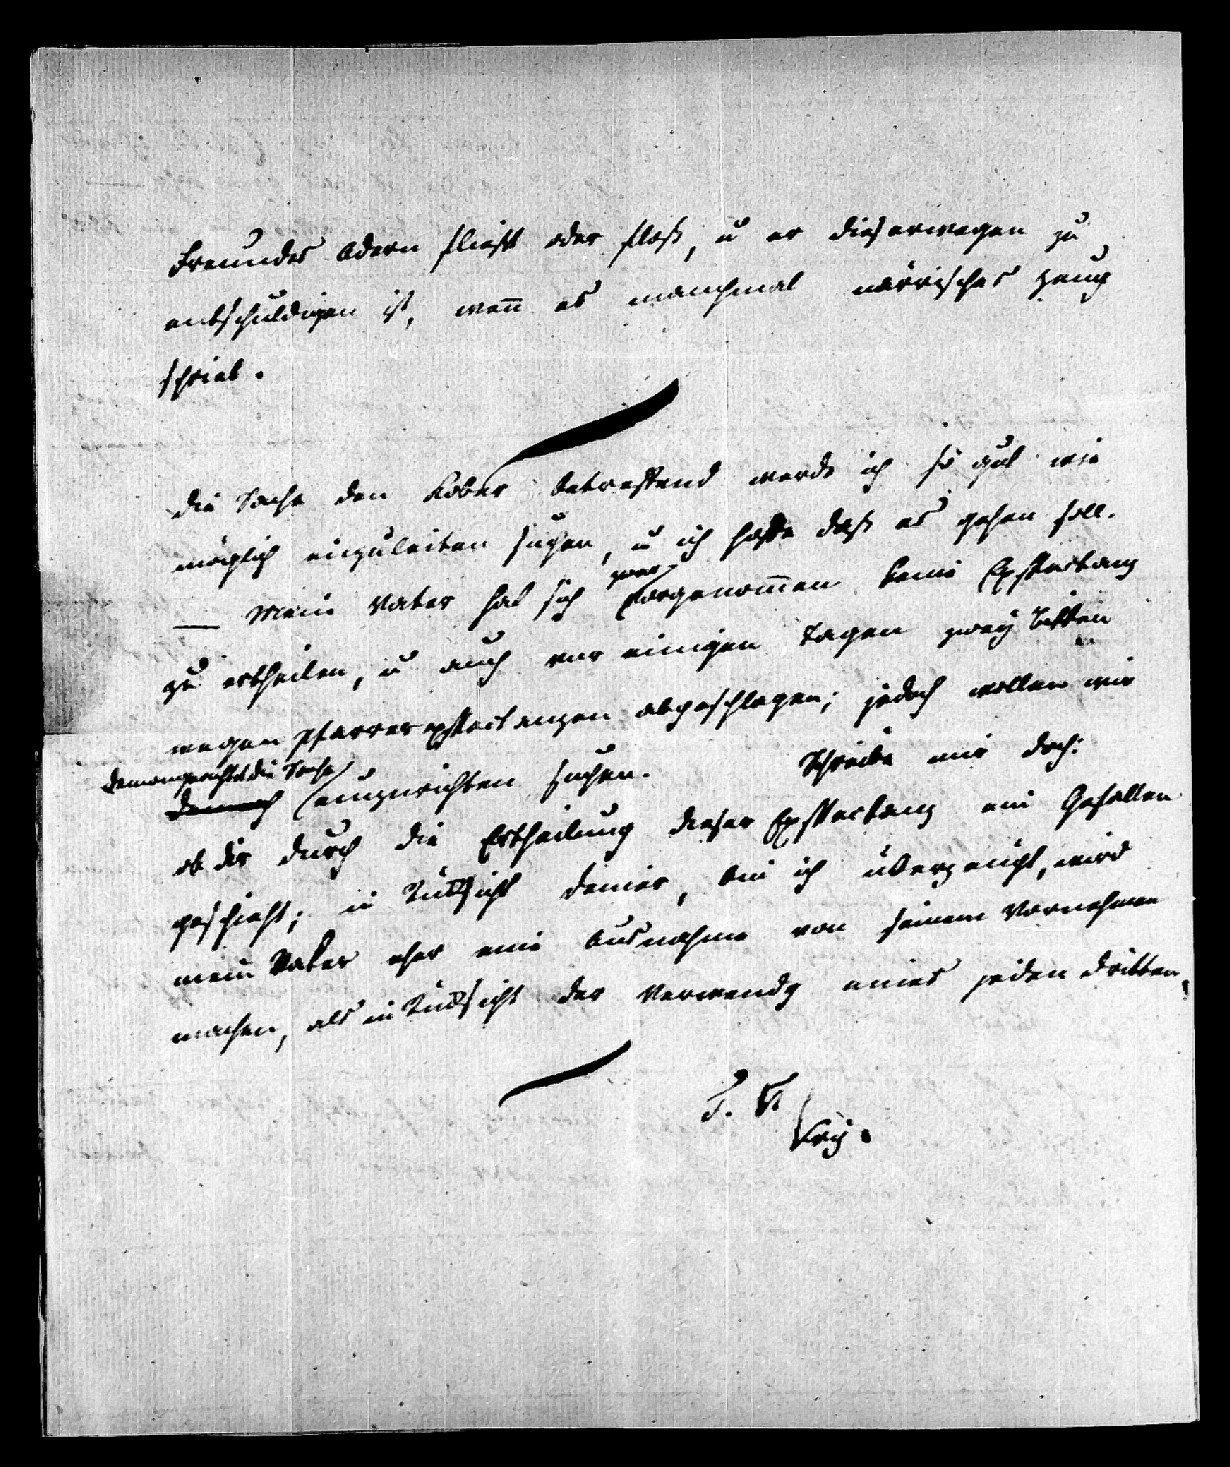 Freundes Adern fließt oder floß, u er dieserwegen zu
entschuldigen ist, wen̄ es manchmal närrisches Zeug
schrieb.
Die Sache den Kober betreffend werde ich so gut wie
möglich einzuleiten suchen, u ich hoffe daß es gehen soll.
— Mein Vater hat sich zwar vorgenom̄en keine Exspectanz
zu ertheilen, u auch vor einigen Tagen zwey Bitten
wegen Pfarrexspectanzen abgeschlagen; jedoch wollen wir
demongeachtet die Sache
dennoch einzurichten suchen. Schreibe mir doch:
ob dir durch die Ertheilung dieser Exspectanz ein Gefallen
geschieht; in Rücksicht deiner, bin ich überzeugt, wird
mein Vater eher eine Ausnahme von seinem Vornehmen
machen, als in Rücksicht der Verwendg eines jeden dritten.